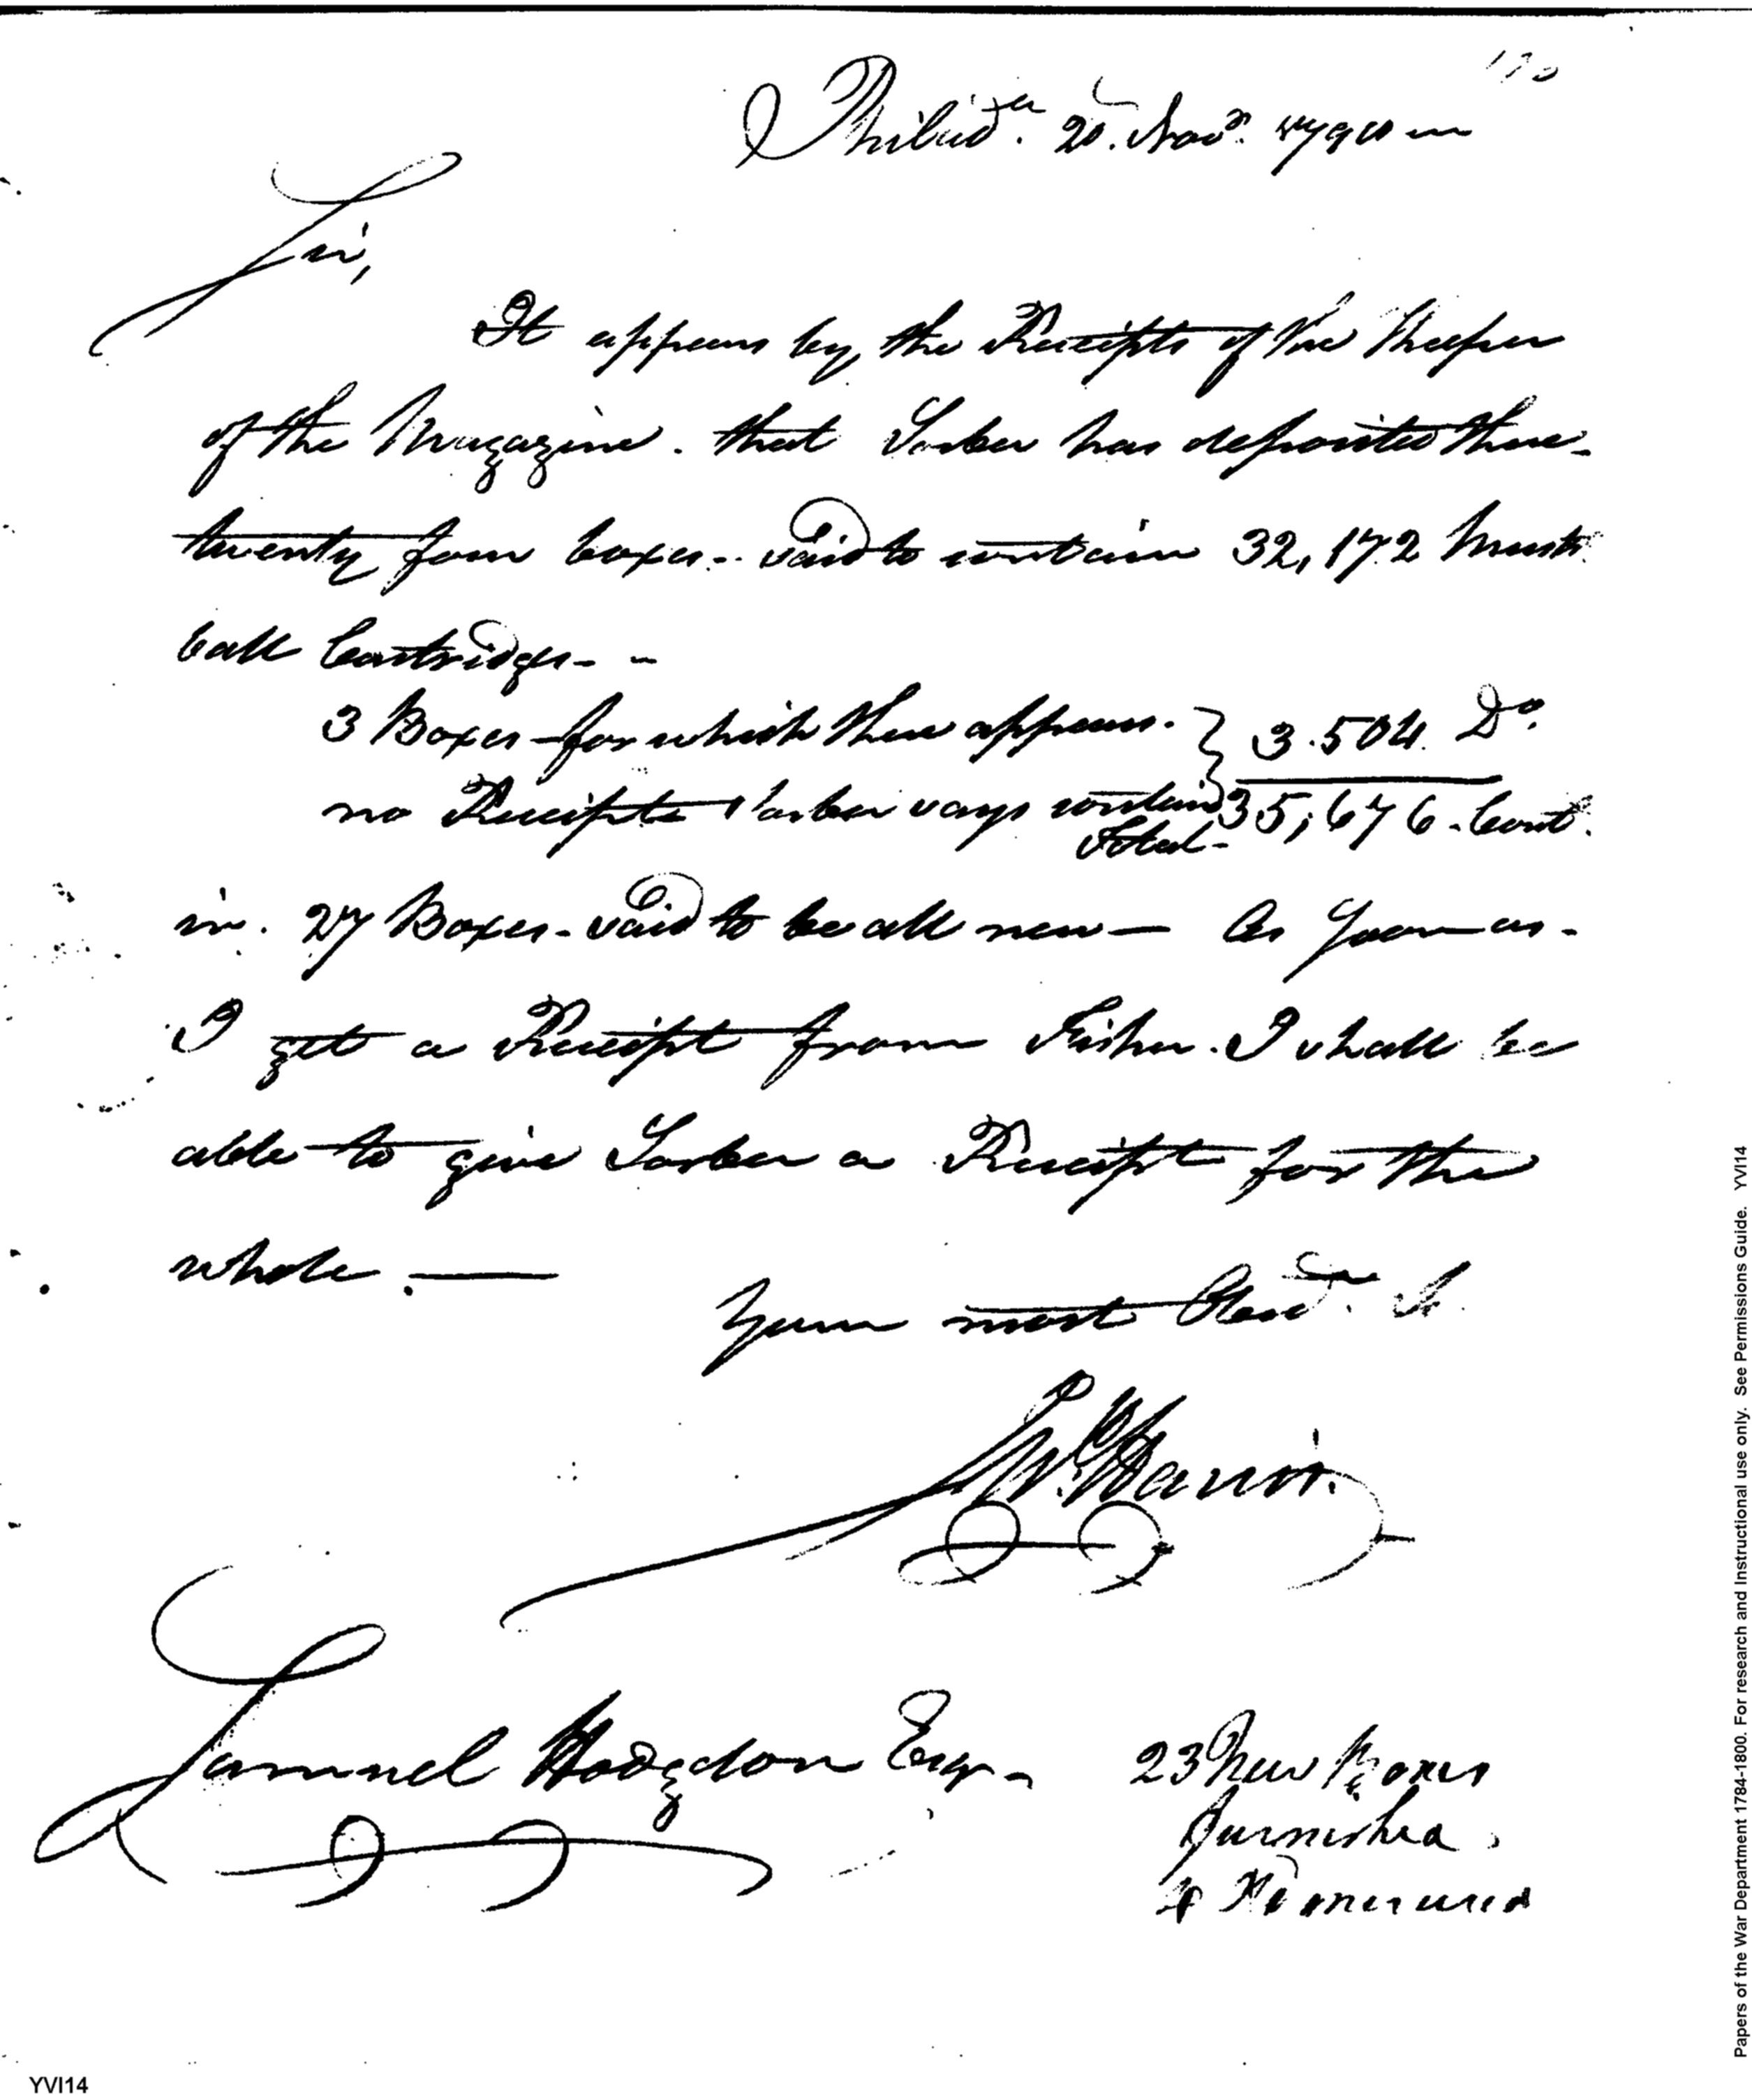 Philad.a 20. Novr. 179
Sir,
It appears by the Receipts of the Keeper
of the Magazine. that Sarber has deposited there-
twenty four boxes-- said to contain 32,172 Musk
ball Cartridges- -
3 Boxes for which there appears. } 3.504. Do.
no Receipts Sarber says contain 35,676. Cart.
Total-
in. 27 Boxes- said to be all new— As soon as-
I get a Receipt from Fisher. I shall be
able to give Sarber a Receipt for the
whole. —
Your most Obedt. St.
W. Harris.
Samuel Hodgdon Esqr-
23 New Boxes
furnished
YVI14
Papers of the War Department 1784-1800. For research and Instructional use only. See Permissions Guide. YVI14